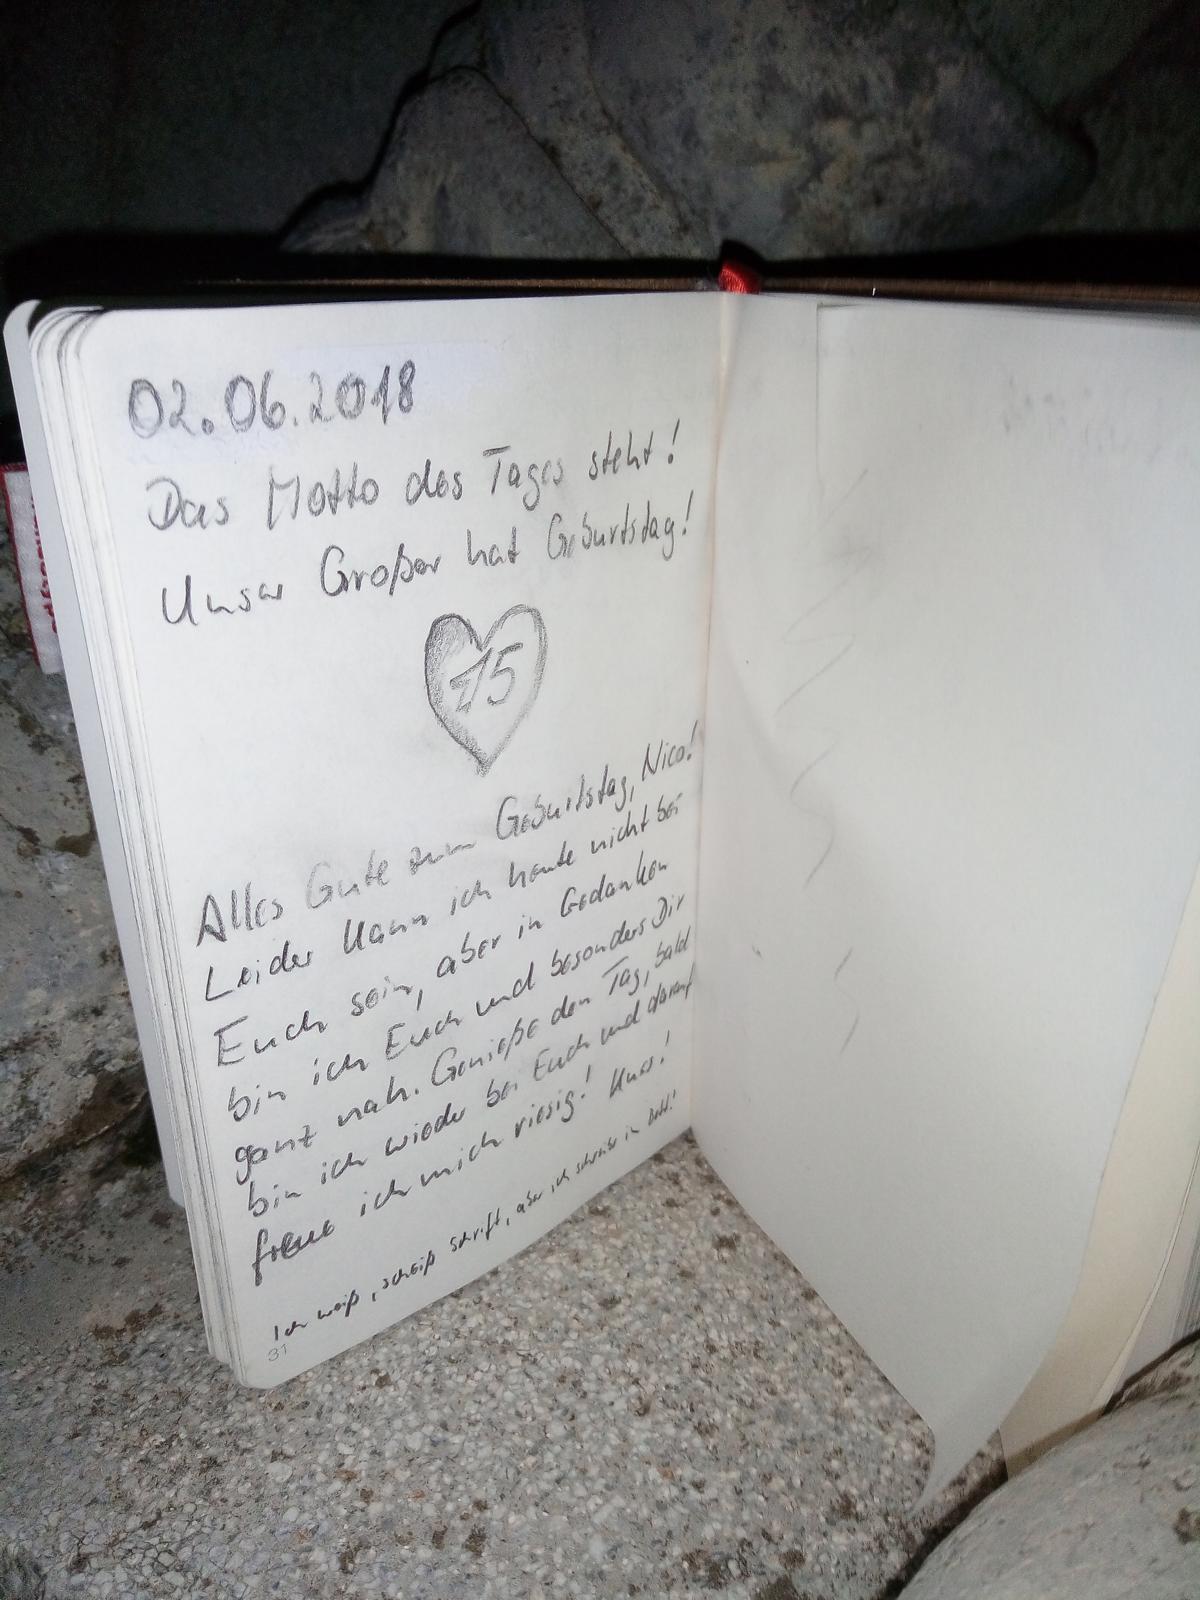 02.06.2018
Das Motto des Tages steht!
Unser Großer hat Geburtstag!
15
Alles Gute zum Geburtstag, Nico!
Leider kann ich heute nicht bei
Euch sein, aber in Gedanken
bin ich Euch und besonders Dir
ganz nah. Genieße den Tag, bald
bin ich wieder bei Euch und darauf
freue ich mich riesig! Kuss!
Ich weiß, scheiß schrift, aber ich schreibe im Bett!
31